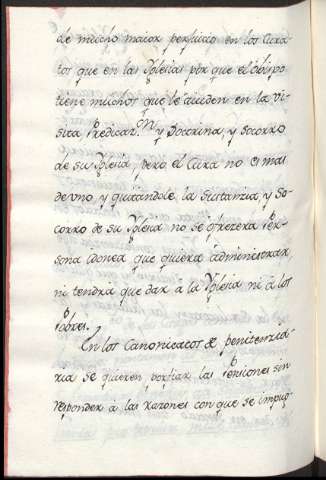 de mucho maior perjuicio en los Cura
tos que en las Yglesias por que el Obispo
tiene muchos que le aiuden en la vi
sita Predicaz.on y Doctrina, y Socorro
de su Yglesia, pero el Cura no es mas
de vno y quitandole la Sustancia, y So
corro de su Yglesia no se ofrezera Per
sona idonea que quiera administrar,
ni tendra que dar a la Yglesia ni a los
Pobres.
En los Canonicatos de penitenzia
ria se quieren portiar las Pensiones sin
responder a las razones con que se impug